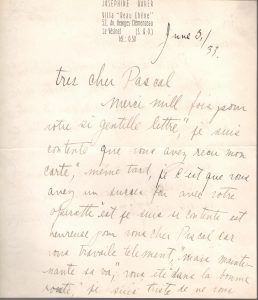 JOSÉPHINE BAKER
Villa "Beau Chêne"
52, Av. Georges Clémenceau
Le Vésinet (S. & O.)
June 3/
39.
tres cher Pascal
Merci mill fois pour
votre si gentille lettre," je suis
contente que vous avez recu mon
carte," même tard, je c'est que vous
avez un succes fou avec votre
operatte" est je suis si contente est
heureuse pour vous cher Pascal car
vous travaile telement," mais mainte
nante sa va," vous ete dans la bonne
route," je suis triste de ne vous